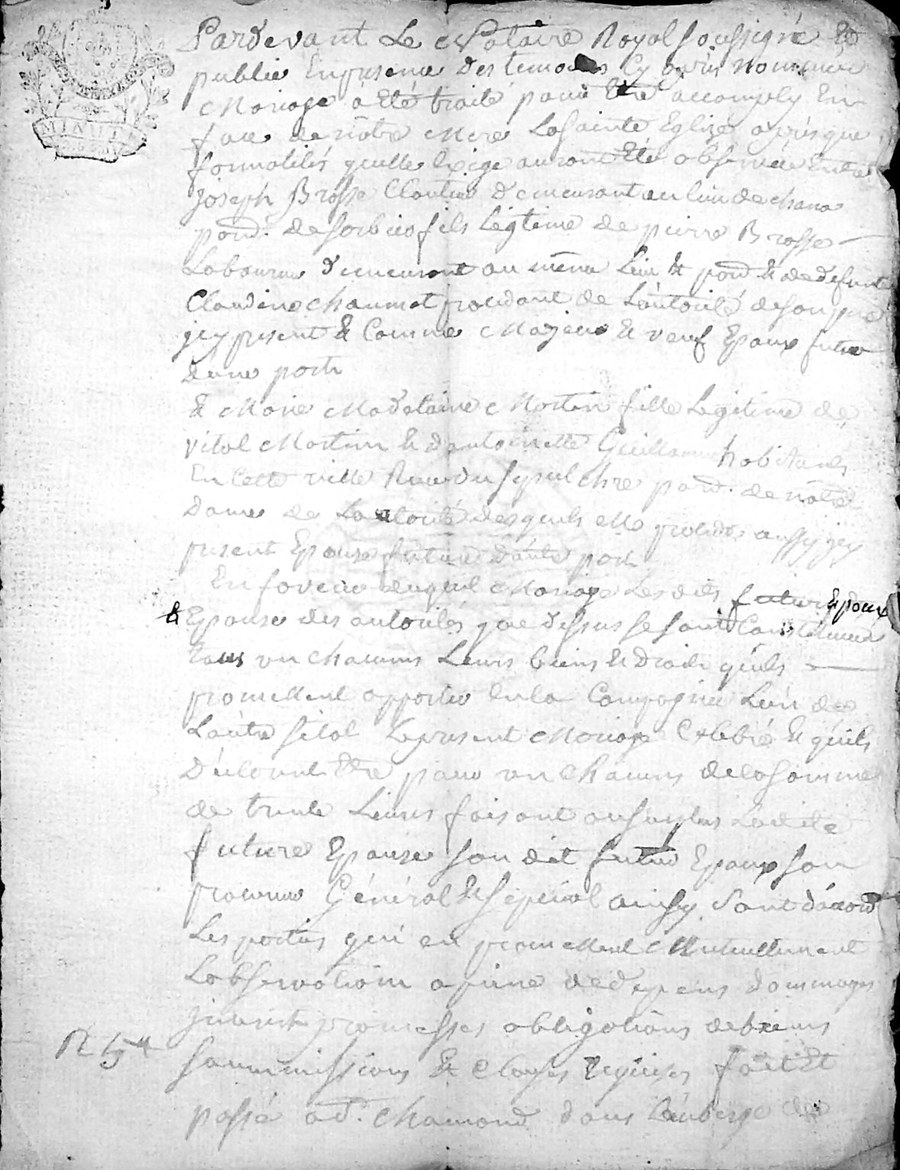 MINUTE
Pardevant Le Notaire Royal soussigné Et
publie En presence des temoins Cy bas nommés
Mariage a été traité pour Etre accomply En
face de nôtre Mere La Sainte Eglise apresque
formalités quelle Exige auront Eté observée Entre
Joseph Brosse Cloutier Demeurant au lieu de chana
parr. de sorbier fils Legitime de pierre Brosse
Laboureur demeurant au même Lieu & parr. & de defunte
Claudine chaumat procedant de L'autorité de son pere
jcy present & Comme Majeur & veuf Epoux futur
dune part
& Marie Madelaine Martin fille Legitime de
vital Martin & d'antoinette Guillaume habitants
En Cette ville Rue du sepulchre parr. de nôtre
Dame de Lautorité desquels elle procede aussy jcy
present Epouse future D'autre part
En faveur duquel Mariage Les dits futur Epoux
& Epouse des autorités que dessus se sont Constitués
tous un chacuns Leurs biens & Droits quils
promettent apporter En la Compagnie L'un de
L'autre sitot Le present Mariage Celebré & quils
D'eclarent Etre pour un chacuns de la somme
de trente Livres faisant au surplus Ladite
future Epouse son dit futur Epoux son
procureur Général & special ainsy Sont d'acord
Les parties qui en promettent Mutuellement
L'observation a peine de depens dommages
jnterest promesses obligations de biens
soummissions & clauses requises fait Et
R 5ᵗᵗ
passé a Sᵗ. chamond dans L'auberge de